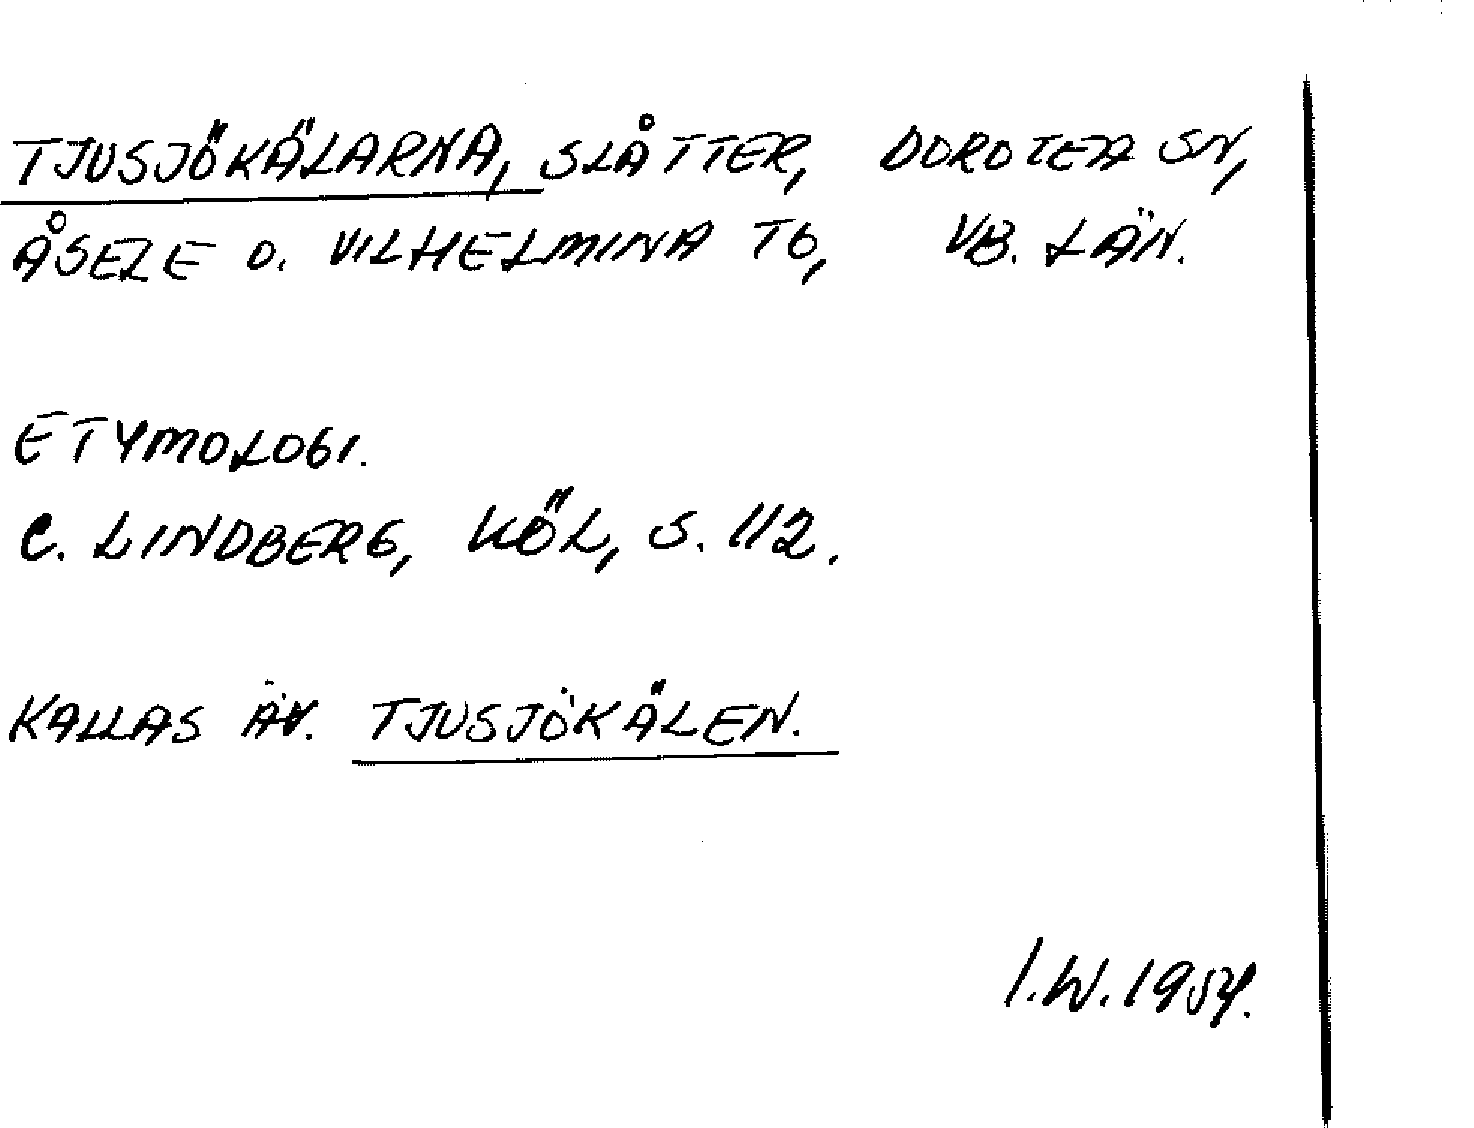 TJUSJÖKÄLARNA, SLÅTTER, DOROTEA SN,
ÅSELE O. VILHELMINA TG, VB. LÄN.
ETYMOLOGI.
C. LINDBERG, KÖL, S. 112.
KALLAS ÄV. TJUSJÖKÄLEN.
I.W. 1954.